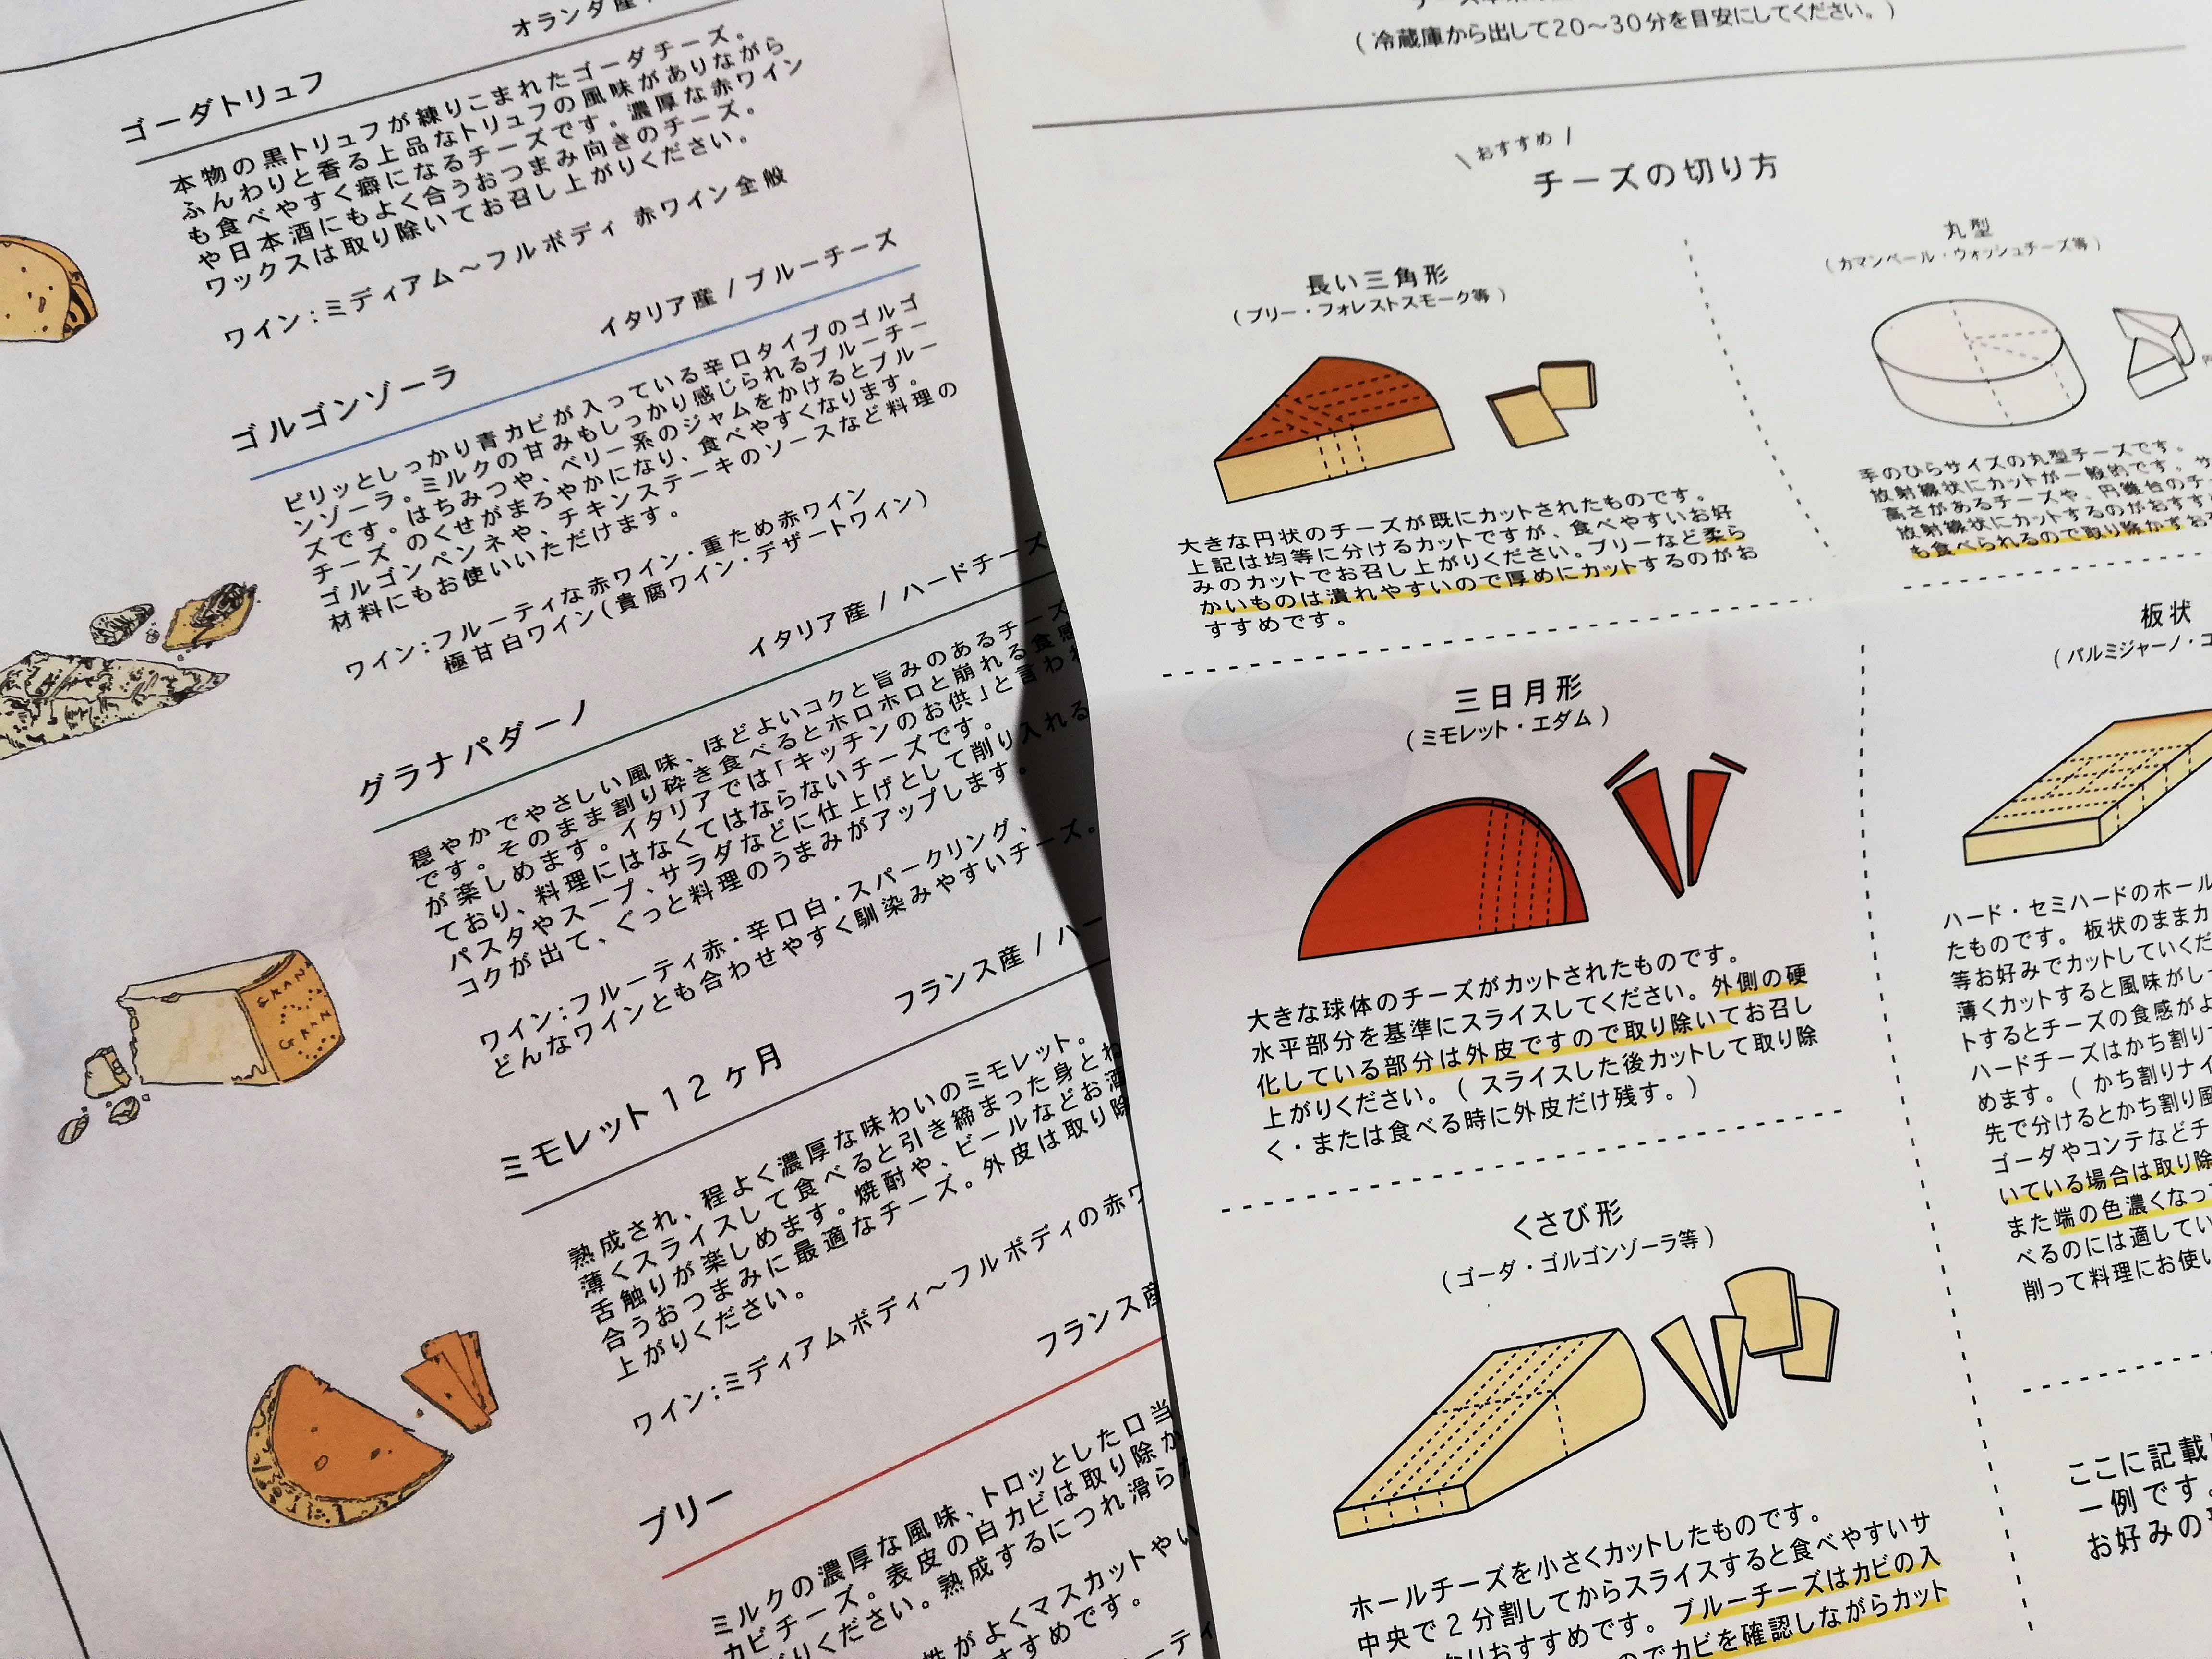 オランダ産
ゴーダトリュフ
本物の黒トリュフが練りこまれたゴーダチーズ。
ふんわりと香る上品なトリュフの風味がありながら
も食べやすく癖になるチーズです。濃厚な赤ワイン
や日本酒にもよく合うおつまみ向きのチーズ。
ワックスは取り除いてお召し上がりください。
ワイン:ミディアム〜フルボディ 赤ワイン全般
イタリア産 / ブルーチーズ
ゴルゴンゾーラ
ピリッとしっかり青カビが入っている辛口タイプのゴルゴ
ンゾーラ。ミルクの甘みもしっかり感じられるブルーチー
ズです。はちみつや、ベリー系のジャムをかけるとブルー
チーズ のくせがまろやかになり、食べやすくなります。
ゴルゴンペンネや、チキンステーキのソースなど料理の
材料にもお使いいただけます。
ワイン:フルーティな赤ワイン・重ため赤ワイン
極甘白ワイン(貴腐ワイン・デザートワイン)
イタリア産 / ハードチーズ
グラナパダーノ
穏やかでやさしい風味、ほどよいコクと旨みのあるチーズ
です。そのまま割り砕き食べるとホロホロと崩れる食感
が楽しめます。イタリアでは「キッチンのお供」と言われ
ており、料理にはなくてはならないチーズです。
パスタやスープ、サラダなどに仕上げとして削り入れる
コクが出て、ぐっと料理のうまみがアップします。
ワイン:フルーティ赤・辛口白・スパークリング、
どんなワインとも合わせやすく馴染みやすいチーズ。
フランス産 / ハー
ミモレット 12 ヶ月
熟成され、程よく濃厚な味わいのミモレット。
薄くスライスして食べると引き締まった身とね
舌触りが楽しめます。焼酎や、ビールなどお酒
合うおつまみに最適なチーズ。外皮は取り除
上がりください。
ワイン:ミディアムボディ〜フルボディの赤ワ
フランス産
ブリー
ミルクの濃厚な風味、トロッとした口当
カビチーズ。表皮の白カビは取り除か
りください。熟成するにつれ滑ら
性がよくマスカットやい
すすめです。
ーティ
(冷蔵庫から出して20〜30分を目安にしてください。)
\ おすすめ /
チーズの切り方
長い三角形
(ブリー・フォレストスモーク等)
大きな円状のチーズが既にカットされたものです。
上記は均等に分けるカットですが、食べやすいお好
みのカットでお召し上がりください。ブリーなど柔ら
かいものは潰れやすいので厚めにカットするのがお
すすめです。
丸型
(カマンベール・ウォッシュチーズ等)
手のひらサイズの丸型チーズです。
放射線状にカットが一般的です。サ
高さがあるチーズや、円錐台のチー
放射線状にカットするのがおすす
も食べられるので取り除かずお
三日月形
(ミモレット・エダム)
大きな球体のチーズがカットされたものです。
水平部分を基準にスライスしてください。外側の硬
化している部分は外皮ですので取り除いてお召し
上がりください。(スライスした後カットして取り除
く・または食べる時に外皮だけ残す。)
板状
(パルミジャーノ・コ
ハード・セミハードのホール
たものです。板状のままカ
等お好みでカットしていくだ
薄くカットすると風味がし
トするとチーズの食感がよ
ハードチーズはかち割り
めます。(かち割りナイ
先で分けるとかち割り風
ゴーダやコンテなどチ
いている場合は取り除
また端の色濃くなっ
べるのには適してい
削って料理にお使い
くさび形
(ゴーダ・ゴルゴンゾーラ等)
ホールチーズを小さくカットしたものです。
中央で2分割してからスライスすると食べやすいサ
なりおすすめです。ブルーチーズはカビの入
のでカビを確認しながらカット
ここに記載
一例です。
お好みの